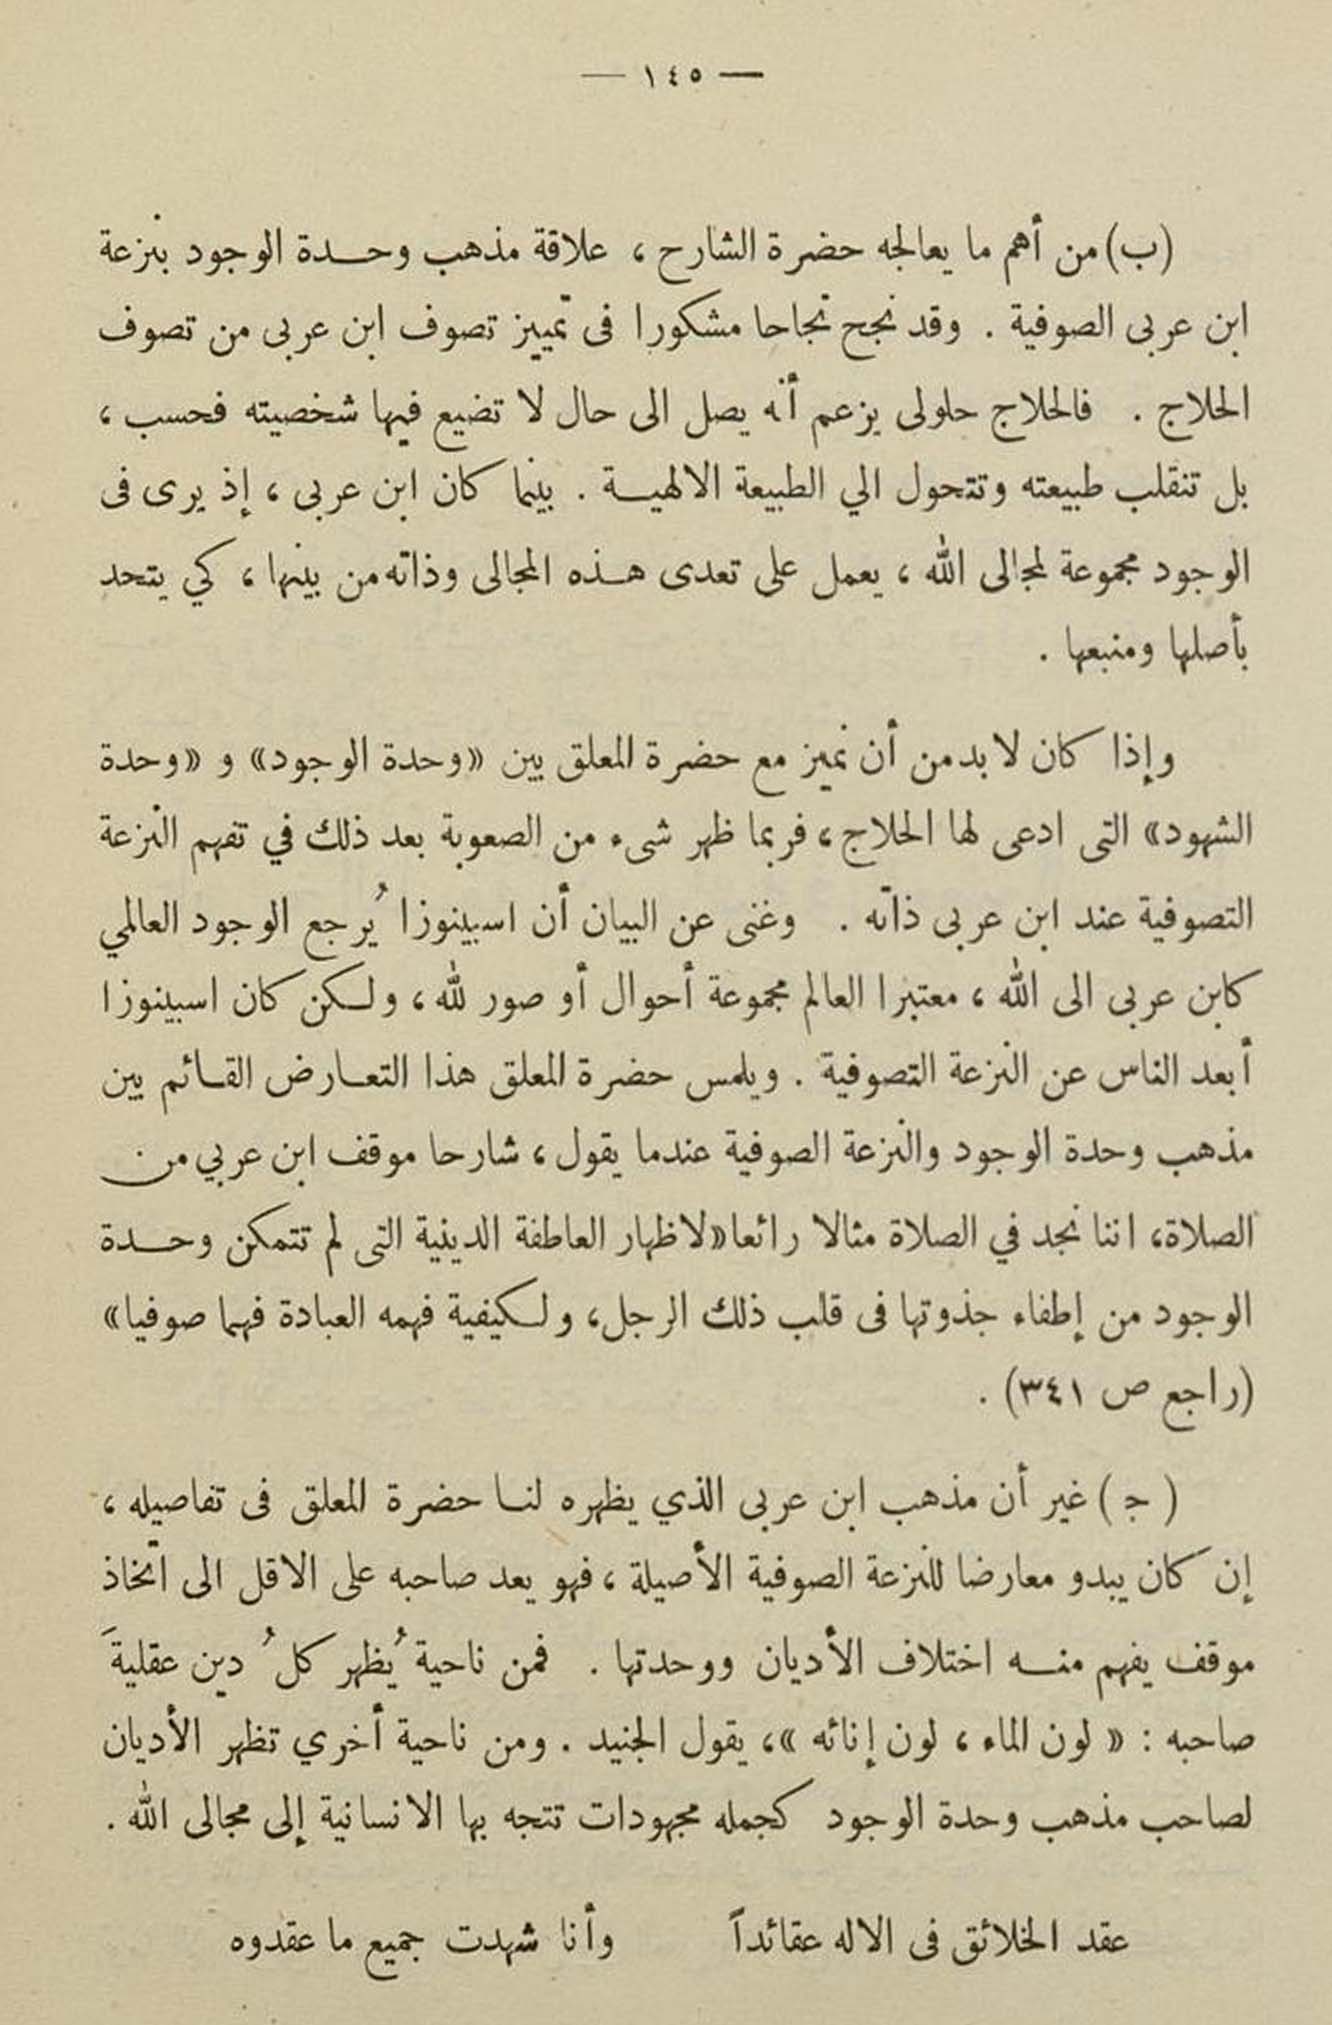 — ١٤٥ —
(ب) من أهم ما يعالجه حضرة الشارح ، علاقة مذهب وحدة الوجود بنزعة
ابن عربى الصوفية . وقد نجح نجاحا مشكورا فى تمييز تصوف ابن عربى من تصوف
الحلاج . فالحلاج حلولى يزعم أنه يصل الى حال لا تضيع فيها شخصيته فحسب ،
بل تنقلب طبيعته وتتحول الي الطبيعة الالهية . بينما كان ابن عربى ، إذ يرى فى
الوجود مجموعة لمجالى الله ، يعمل على تعدى هذه المجالى وذاته من بينها ، كي يتحد
بأصلها ومنبعها .
وإذا كان لا بد من أن نميز مع حضرة المعلق بين «وحدة الوجود» و «وحدة
الشهود» التى ادعى لها الحلاج ، فربما ظهر شىء من الصعوبة بعد ذلك في تفهم النزعة
التصوفية عند ابن عربى ذاته . وغنى عن البيان أن اسبينوزا يُرجع الوجود العالمي
كابن عربى الى الله ، معتبرا العالم مجموعة أحوال أو صور لله ، ولكن كان اسبينوزا
أبعد الناس عن النزعة التصوفية . ويلمس حضرة المعلق هذا التعارض القائم بين
مذهب وحدة الوجود والنزعة الصوفية عندما يقول ، شارحا موقف ابن عربي من
الصلاة ، اننا نجد في الصلاة مثالا رائعا «لاظهار العاطفة الدينية التى لم تتمكن وحدة
الوجود من إطفاء جذوتها فى قلب ذلك الرجل ، ولكيفية فهمه العبادة فهما صوفيا»
(راجع ص ٣٤١) .
( ج ) غير أن مذهب ابن عربى الذي يظهره لنا حضرة المعلق فى تفاصيله ،
إن كان يبدو معارضا للنزعة الصوفية الأصيلة ، فهو يعد صاحبه على الاقل الى اتخاذ
موقف يفهم منه اختلاف الأديان ووحدتها . فمن ناحية يُظهر كلُ دين عقليةَ
صاحبه : « لون الماء ، لون إنائه » ، يقول الجنيد . ومن ناحية أخري تظهر الأديان
لصاحب مذهب وحدة الوجود كجمله مجهودات تتجه بها الانسانية إلى مجالى الله .
عقد الخلائق فى الاله عقائداً وأنا شهدت جميع ما عقدوه